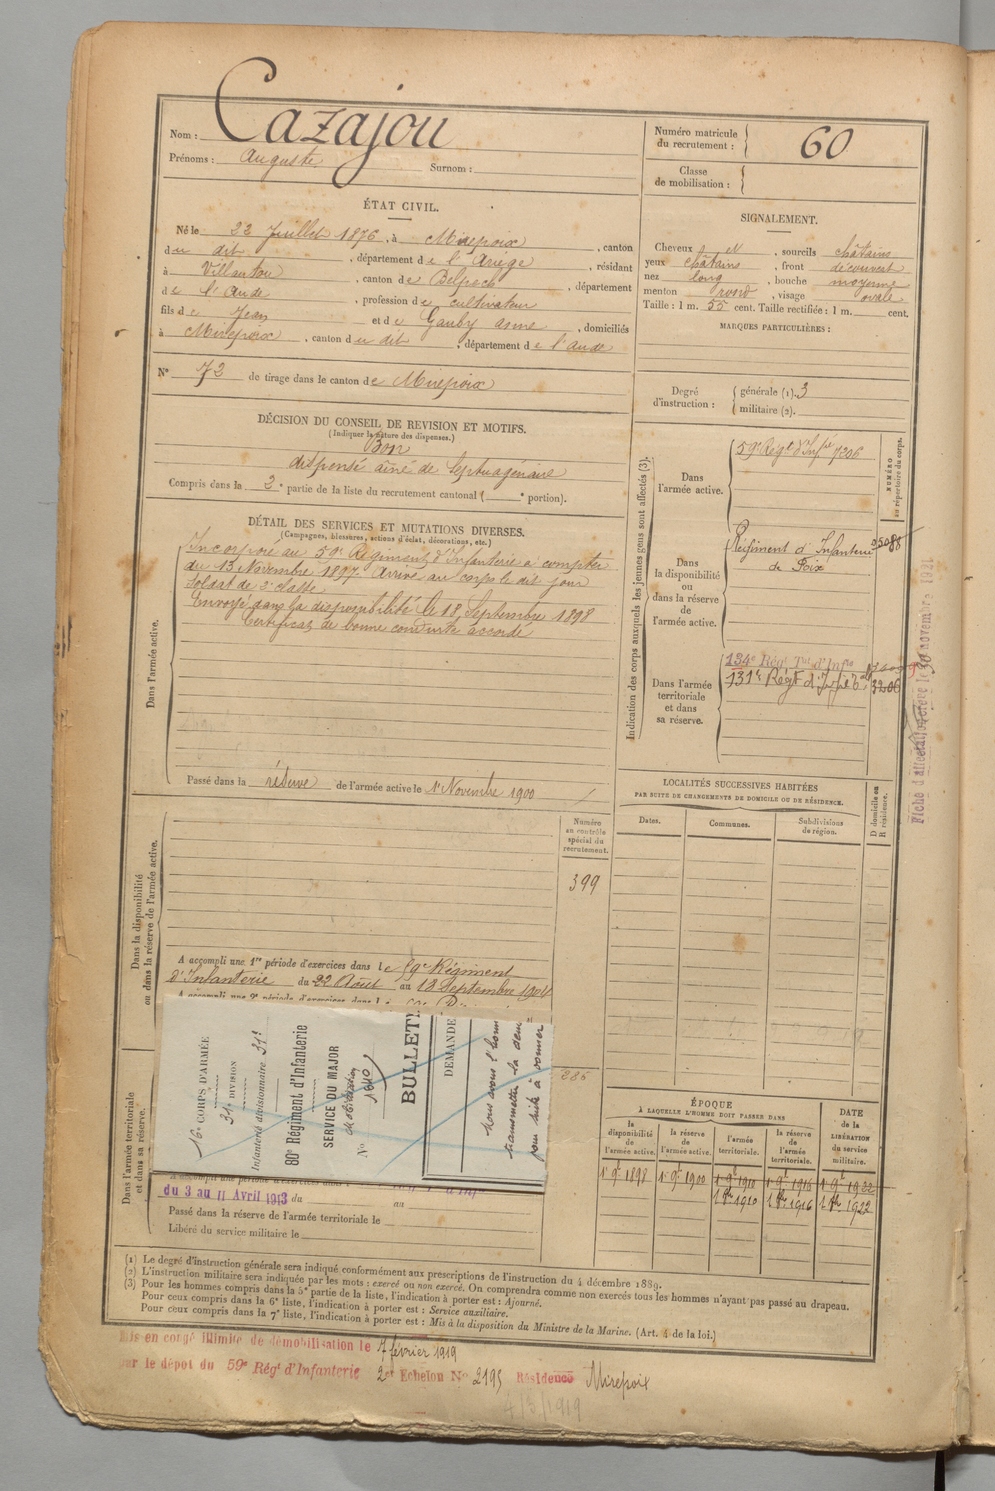 Nom : Cazajou
Prénoms : Auguste Surnom :
Numéro matricule du recrutement : 60
Classe de mobilisation :
ÉTAT CIVIL.
Né le 22 Juillet 1876, à Mirepoix, canton
du dit, département de l'Ariège, résidant
à Villautou, canton de Belpech, département
de l'Aude, profession de cultivateur
fils de Jean et de Gauby anne, domiciliés
à Mirepoix, canton du dit, département de l'aude
N° 72 de tirage dans le canton de Mirepoix
SIGNALEMENT.
Cheveux et, sourcils châtains
yeux châtains, front découvert
nez long, bouche moyenne
menton rond, visage ovale
Taille : 1 m. 55 cent. Taille rectifiée : 1 m. cent.
MARQUES PARTICULIÈRES :
Degré d'instruction : générale (1). 3
militaire (2).
DÉCISION DU CONSEIL DE REVISION ET MOTIFS.
(Indiquer la nature des dispenses.)
Bon
dispensé ainé de Septuagénaire
Compris dans la 2e partie de la liste du recrutement cantonal ( e portion).
DÉTAIL DES SERVICES ET MUTATIONS DIVERSES.
(Campagnes, blessures, actions d'éclat, décorations, etc.)
Dans l'armée active.
Incorporé au 59e Régiment d'Infanterie à compter
du 13 Novembre 1897. Arrivé au corps le dit jour
Soldat de 2e classe
Envoyé dans la disponibilité le 18 Septembre 1898
Certificat de bonne conduite accordé
Passé dans la réserve de l'armée active le 1er Novembre 1900
Indication des corps auxquels les jeunes gens sont affectés (3).
NUMÉRO au répertoire du corps.
Dans l'armée active.
59e Régt d'Infie 7206
Dans la disponibilité ou dans la réserve de l'armée active.
Régiment d'Infanterie 05088
de Foix
Dans l'armée territoriale et dans sa réserve.
134e Régt Tal d'Infie
131e Régt d'Infie 3206
Fiche d'affectation
LOCALITÉS SUCCESSIVES HABITÉES
PAR SUITE DE CHANGEMENTS DE DOMICILE OU DE RÉSIDENCE.
Dates. Communes. Subdivisions de région. D domicile ou R résidence.
Dans la disponibilité ou dans la réserve de l'armée active.
Numéro au contrôle spécial du recrutement.
399
A accompli une 1re période d'exercices dans le 59e Régiment
d'Infanterie du 22 Août au 18 Septembre 1904
A accompli une 2e période d'exercices dans l
16e CORPS D'ARMÉE
31e DIVISION
Infanterie divisionnaire 31e
80e Régiment d'Infanterie
SERVICE DU MAJOR
Mobilisation
N° 1840
BULLETI
DEMANDE
nous avons l'honn
transmettre la dem
pour suite à donner
885
Dans l'armée territoriale et dans sa réserve.
du 3 au 11 Avril 1913 du au
Passé dans la réserve de l'armée territoriale le
Libéré du service militaire le
ÉPOQUE
À LAQUELLE L'HOMME DOIT PASSER DANS
la disponibilité de l'armée active. la réserve de l'armée active. l'armée territoriale. la réserve de l'armée territoriale. DATE de la LIBÉRATION du service militaire.
1er 9bre 1898 1er 9bre 1900 1er 9bre 1910 1er 9bre 1916 1er 9bre 1922
1er 8bre 1910 1er 8bre 1916 1er 8bre 1922
(1) Le degré d'instruction générale sera indiqué conformément aux prescriptions de l'instruction du 4 décembre 1889.
(2) L'instruction militaire sera indiquée par les mots : exercé ou non exercé. On comprendra comme non exercés tous les hommes n'ayant pas passé au drapeau.
(3) Pour les hommes compris dans la 5e partie de la liste, l'indication à porter est : Ajourné.
Pour ceux compris dans la 6e liste, l'indication à porter est : Service auxiliaire.
Pour ceux compris dans la 7e liste, l'indication à porter est : Mis à la disposition du Ministre de la Marine. (Art. 4 de la loi.)
Mis en congé illimité de démobilisation le 7 février 1919
par le dépôt du 59e Régt d'Infanterie 2e Echelon N° 2195 Résidence Mirepoix
4/3/1919